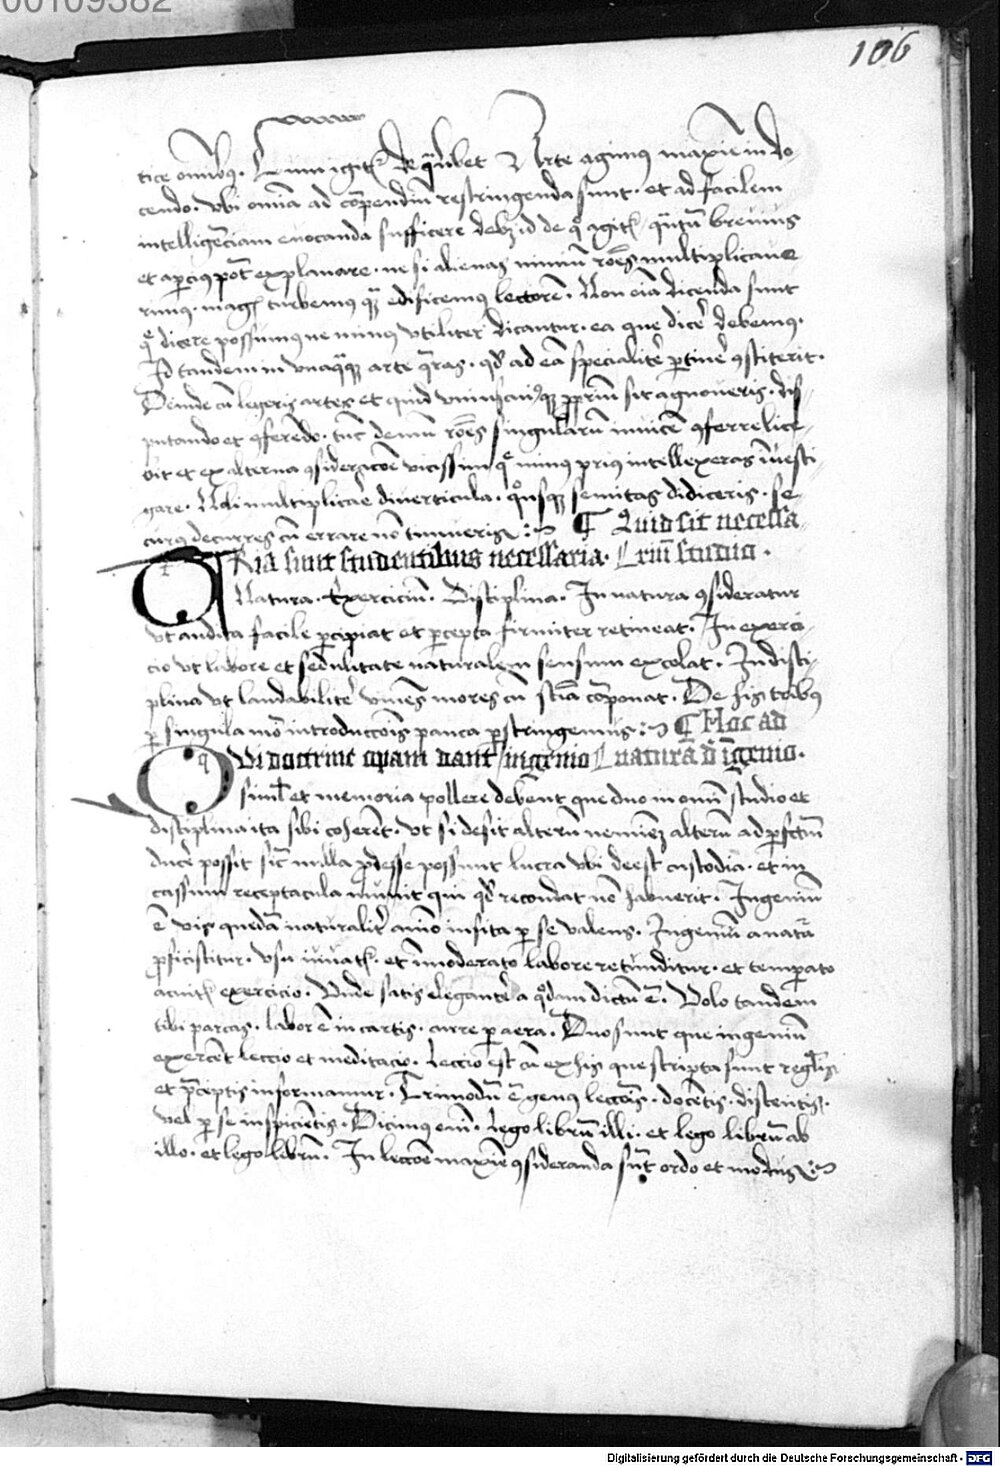 00109382
106
tice om̄ibus. Cum igit᷑ de q̄libet Arte agimus maxīe in do-
cendo. vbi omīa ad cōpendiū restringenda sunt. et ad facilem
intelligēciam euocanda sufficere debꝫ id de qͦ agit᷑ q̄ntū breuius
et apcius pōt explanare. ne si alienas nimiū rōnes multiplicaue
rimus. magis turbemus qᷓꝫ edificemus lectorē. Non eīa dicenda sunt
que dicere possumus ne minus vtiliter dicantur. ea que dicē debemus.
Id tandem in vnaq̄qꝫ arte q̄ras. qd̄ ad eā specialitē ꝑtinē ꝯstiterit.
Deinde cū legeris artes et quid vniuscuiusqꝫ ꝓpriū sit agnoueris. dis
putando et ꝯferēdo. tūc demū rōnes singularū inuicē ꝯferre lice-
bit et ex alterna ꝯsideracōe vicissim q̄ minus prius intellexeras inuesti
gare. Noli multiplicare diuerticula. qͦusqꝫ semitas didiceris. se
curus decurres cū errare nō timueris. ¶ Quid sit necessa
TRia sunt studentibus necessaria. riū studio.
Natura. Exerciciū. Disciplina. In natura ꝯsideratur
vt audita facile ꝑcipiat et ꝑcepta firmiter retineat. In exerci-
cio vt labore et sedulitate naturalem sensum excolat. In disci-
plina vt laudabilitē viuēs mores cū scīa cōponat. De his tribus
ꝑ singula mō introduccōis pauca ꝑstringemus. ¶ Hoc ad
QVi doctrine opam dant ingenio naturā d̄ īgenio.
simul et memoria pollere debent que duo in omī studio et
disciplina ita sibi coherēt. vt si desit alterū neminē alterū ad ꝑfctū
ducē possit sic̄ nulla ꝓdesse possunt lucra vbi deest custodia. et in
cassum receptacula munit qui qd̄ recondat nō habuerit. Ingeniū
ē vis quedā naturalit̄ aīo insita ꝑ se valens. Ingeniū a natā
ꝓficiscitur. vsu iuuat᷑. et īmoderato labore retunditur. et temꝑato
acuit᷑ exercicio. Vnde satis elegantē a qͦdam dictū ē. Volo tandem
tibi parcas. labor ē in cartis. curre ꝑ aera. Duo sunt que ingeniū
exercēt leccio et meditacio. Leccio est cū ex his que scripta sunt regulis
et p̄ceptis informamur. Trimodū ē genus leccōis. docētis. discentis.
vel ꝑ se inspiciētis. Dicimus em̄. Lego librū illi. et lego librū ab
illo. et lego librū. In leccōe maxīe ꝯsideranda sūt ordo et modus
Digitalisierung gefördert durch die Deutsche Forschungsgemeinschaft · DFG